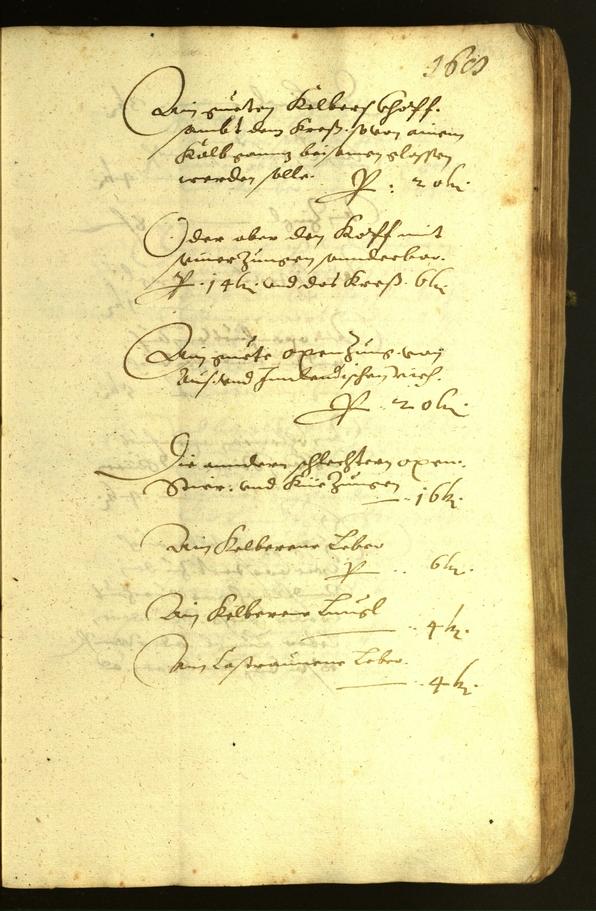 1600
Ain gueten Kelbers Khopff.
sambt dem Kreß. so von ainem
Kalb ganz beisamen glassen
werden solle. P : 20 kr.
Oder aber den Kopff mit
ainer Zungen sonderbar.
P. 14 kr. und das Kreß. 6 kr.
Ain guete oxen Zung von
Aus: und Innlendischen viech.
P. 20 kr.
Die anndern schlechtern oxen.
Stier: und Küe Zungen — 16 kr.
Ain Kelberene Leber
P .. 6 kr.
Ain Kelberene Lungl
— .. 4 kr.
Ain Castraunene Leber.
— .. 4 kr.